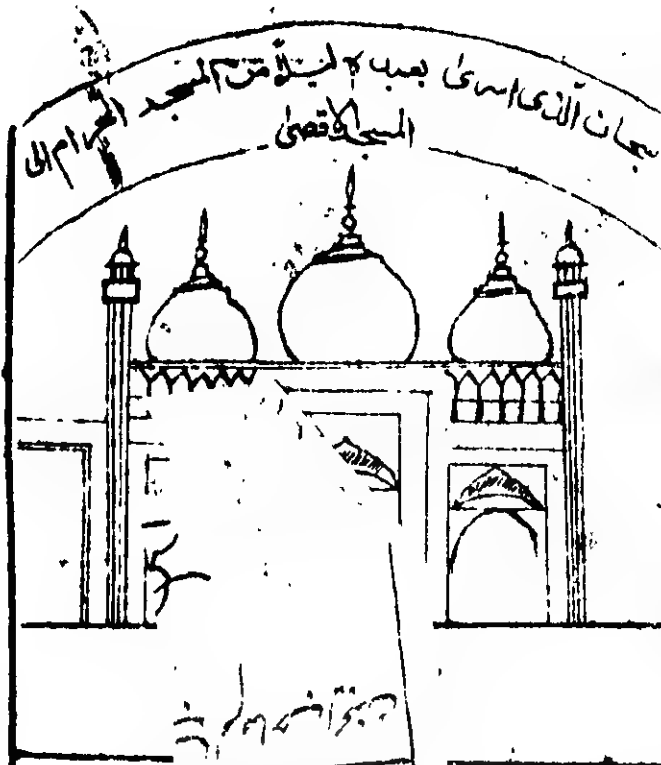 سبحان الذی اسریٰ بعبدہ لیلاً من المسجد الحرام الی
المسجد الاقصیٰ